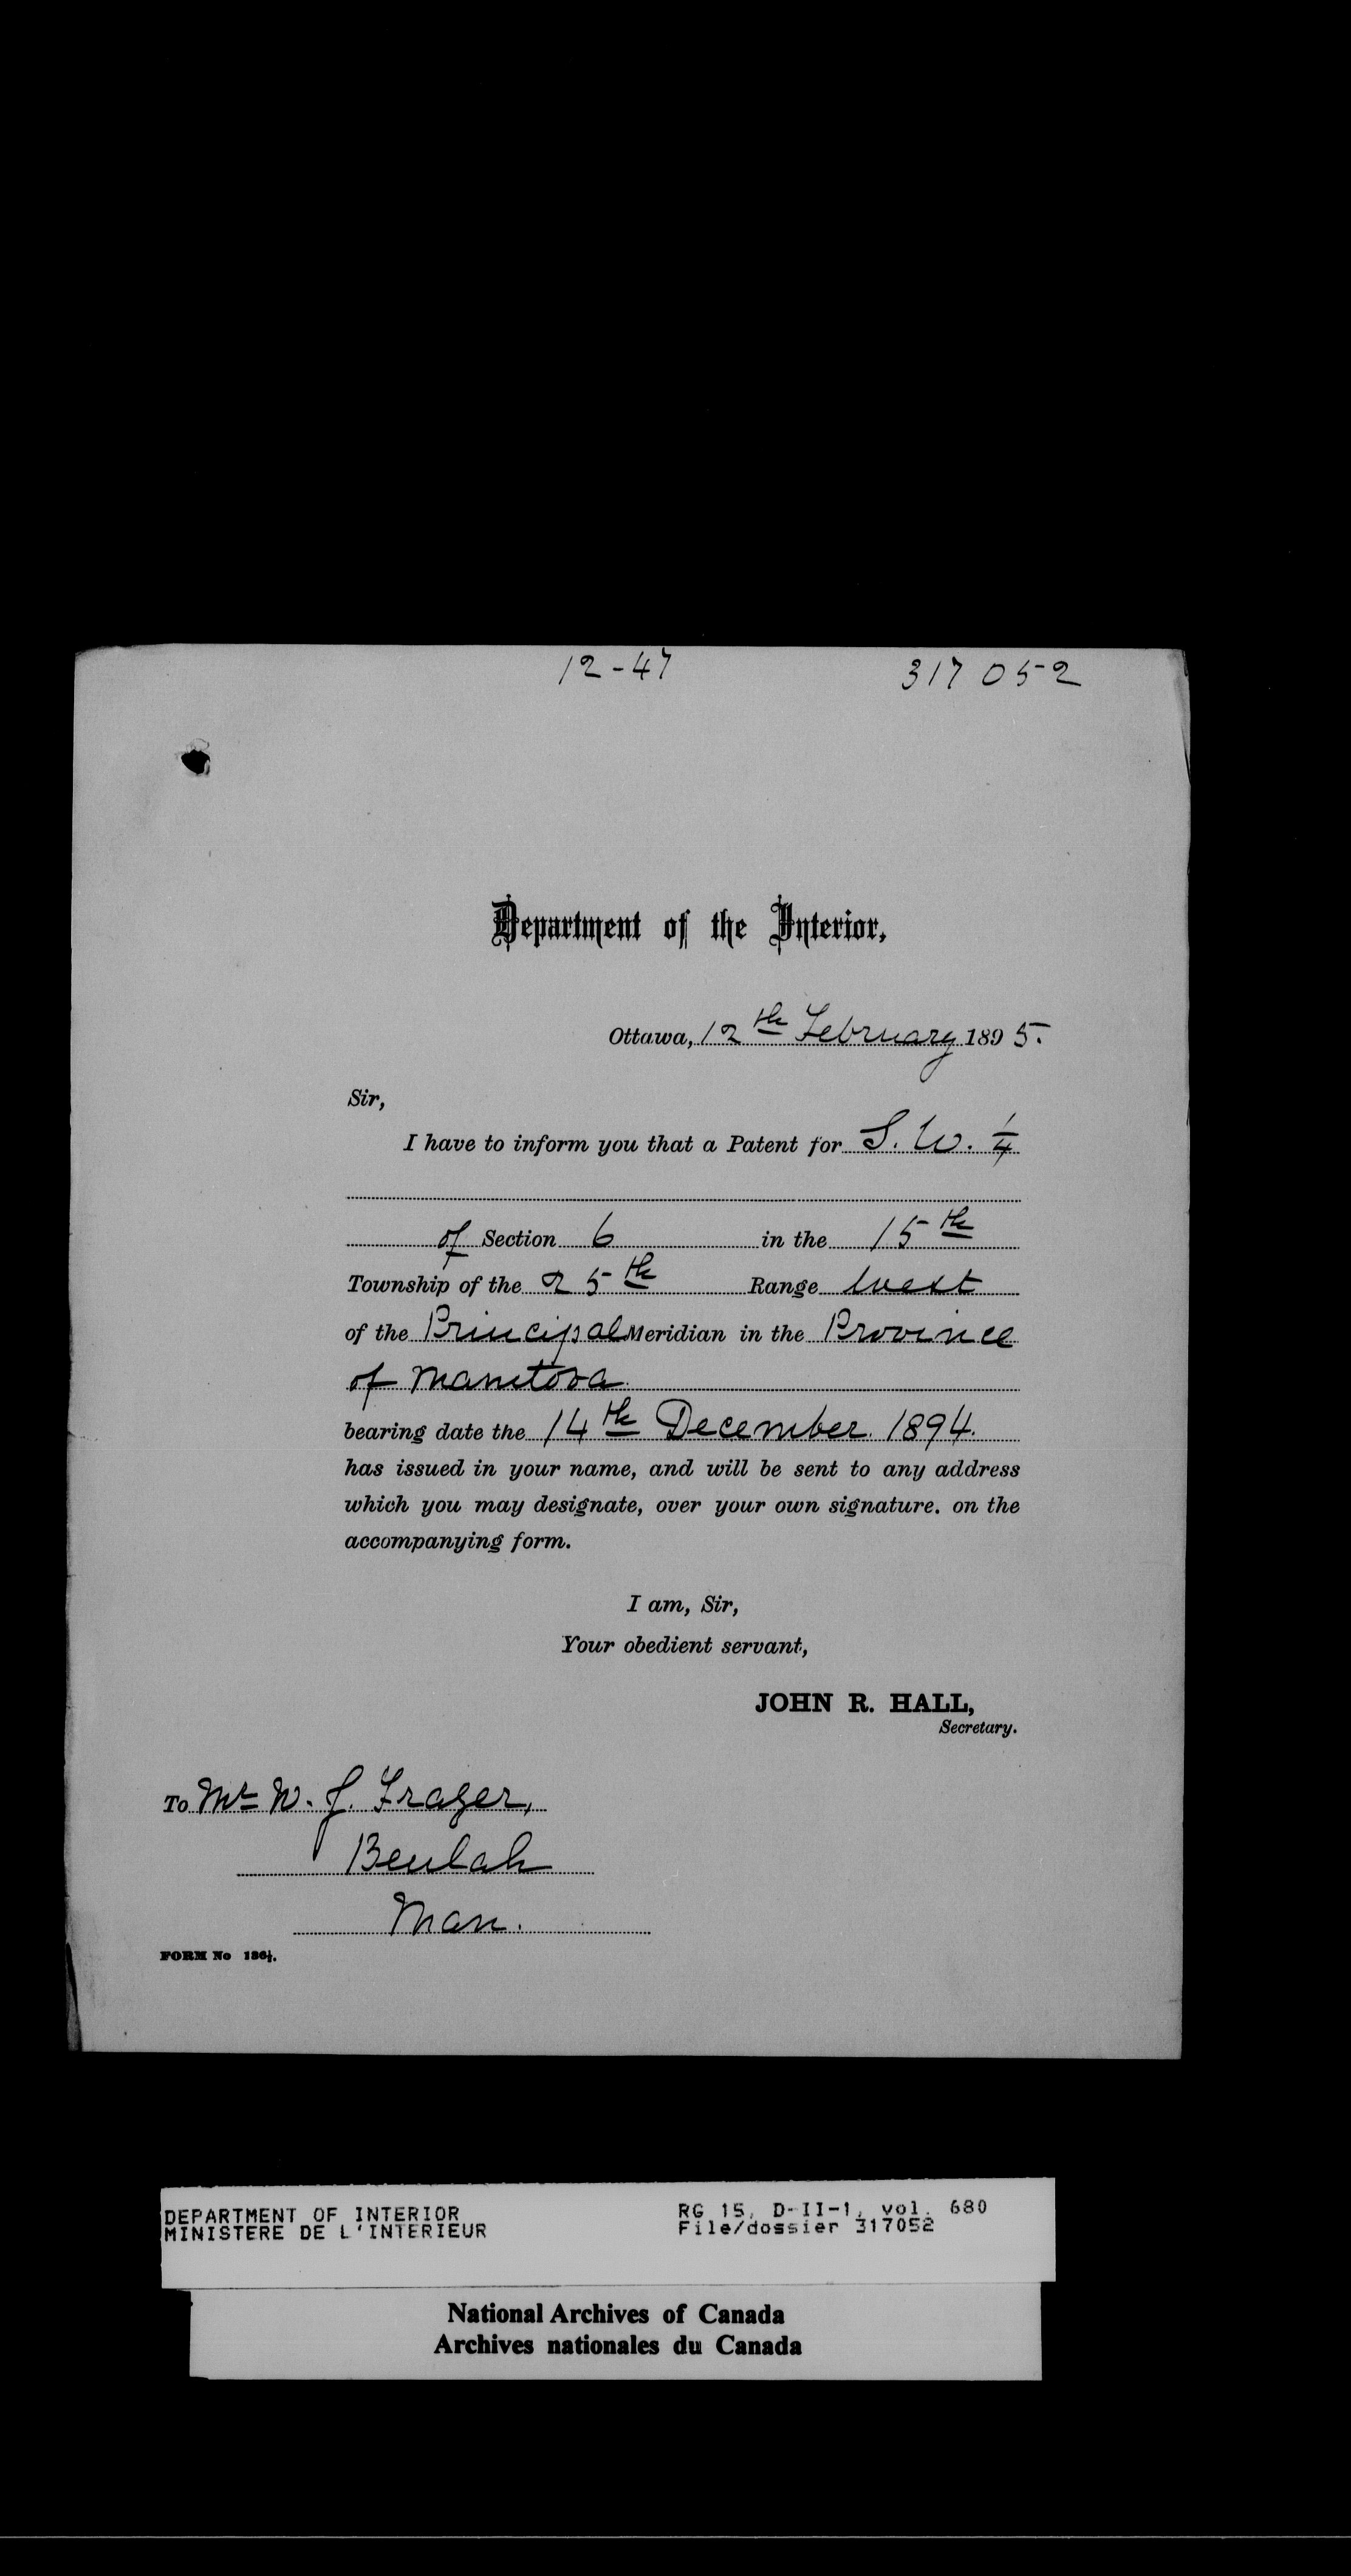 12-47 317052
Department of the Interior,
Ottawa, 12th February 1895.
Sir,
I have to inform you that a Patent for S. W. 1/4
of Section 6 in the 15th
Township of the 25th Range West
of the Principal Meridian in the Province
of Manitoba
bearing date the 14th December 1894.
has issued in your name, and will be sent to any address
which you may designate, over your own signature. on the
accompanying form.
I am, Sir,
Your obedient servant,
JOHN R. HALL,
Secretary.
To Mr W. J. Frazer,
Beulah
Man.
FORM No 136½.
DEPARTMENT OF INTERIOR RG 15, D-II-1, vol. 680
MINISTERE DE L'INTERIEUR File/dossier 317052
National Archives of Canada
Archives nationales du Canada